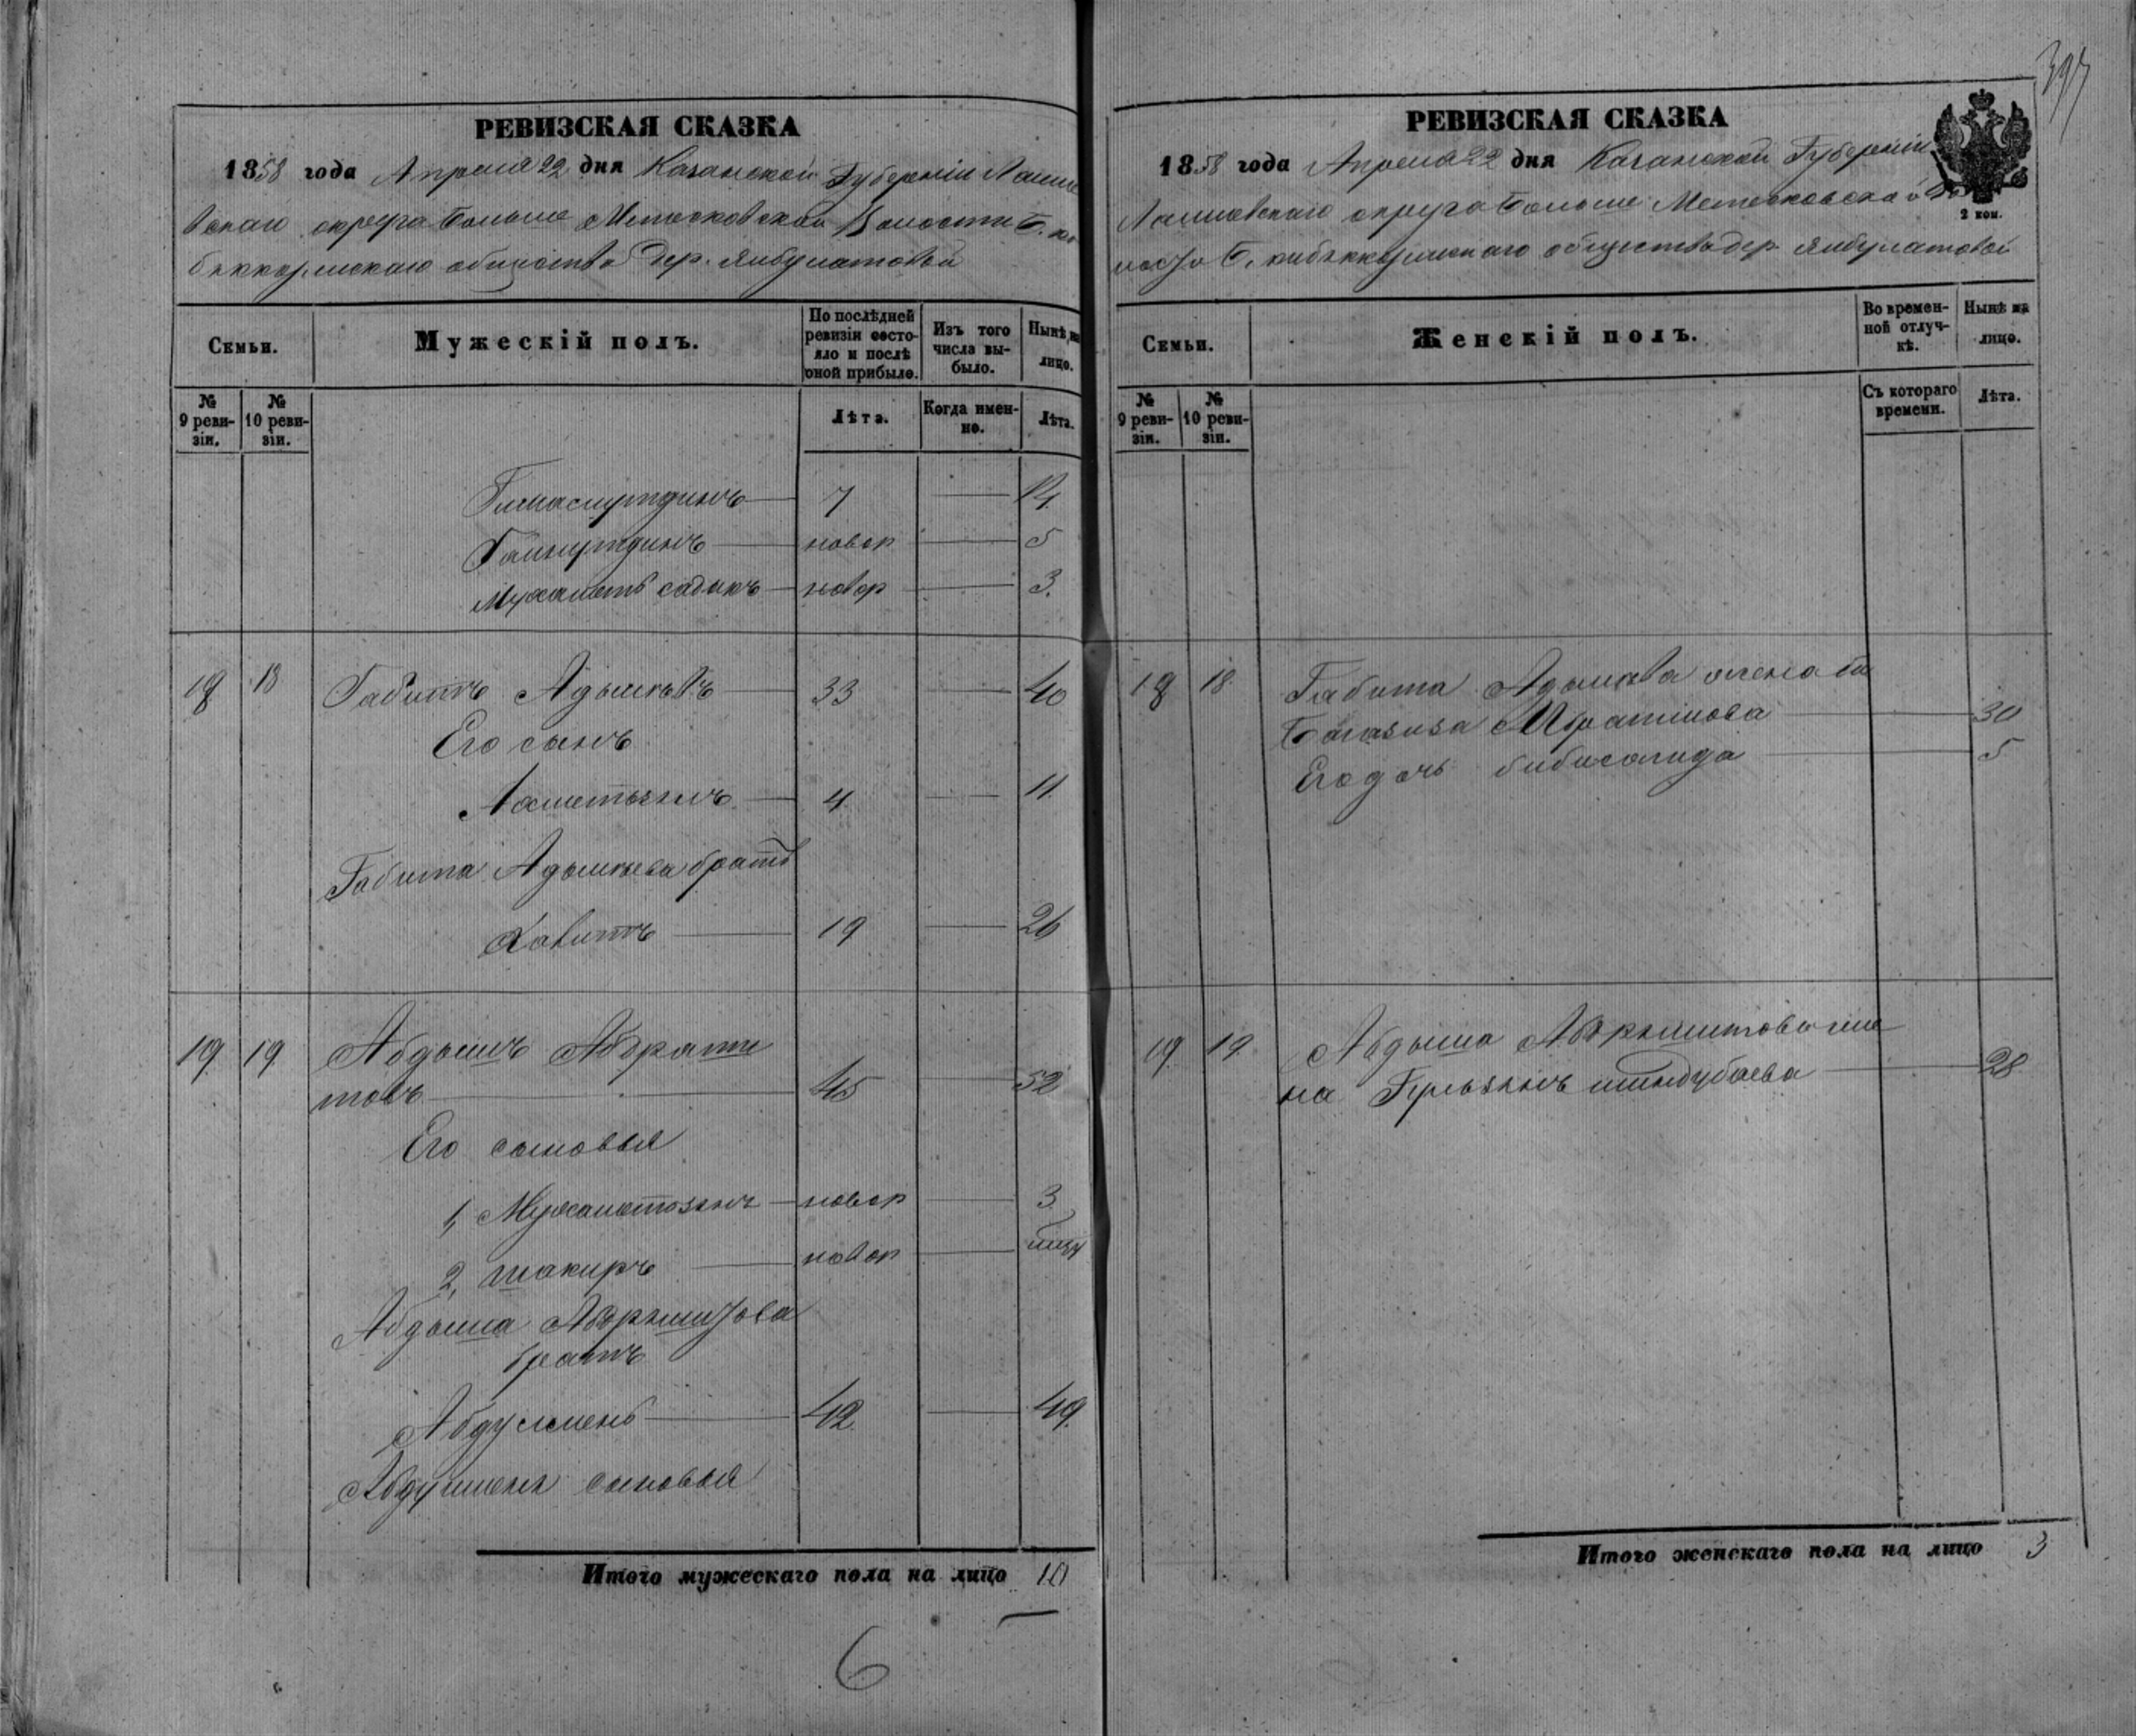 397
РЕВИЗСКАЯ СКАЗКА
1858 года Апреля 22 дня Казанской Губерніи Лаише
вскаго округа Больше Метесковской Волости Б. ки
бяккозинскаго общества дер. Янбулатовой
Семьи.
Мужескій полъ.
По послѣдней ревизіи состояло и послѣ оной прибыло.
Изъ того числа выбыло.
Нынѣ на лицо.
№ 9 ревизіи.
№ 10 ревизіи.
Лѣта.
Когда именно.
Лѣта.
7 14
Гайнутдинъ новор 5
Мухаметъ садыкъ новор 3.
18 18 Габитъ Адышевъ 33 40
Его сынъ
Ахметзянъ 4 11.
Габита Адышева братъ
Хавитъ 19 26
19 19 Абдышъ Абдраши
товъ 45 52
Его сыновья
1, Мухаметзянъ новор 3
2, Шакиръ новор
Абдыша Абдрашитова
братъ
Абдулменъ 42 49.
сыновья
Итого мужескаго пола на лицо 10
6
РЕВИЗСКАЯ СКАЗКА
1858 года Апреля 22 дня Казанской Губерніи
Лаишевскаго округа Больше Метесковской Во
общества дер Янбулатовой
2 коп.
Семьи.
Женскій полъ.
Во временной отлучкѣ.
Нынѣ на лицо.
№ 9 ревизіи.
№ 10 ревизіи.
Съ котораго времени.
Лѣта.
18 18. Габита Адышева жена би
Ибрагимова 30
Его дочь бибисагида 5
19 19 Абдыша Абдрашитова же
на 28
Итого женскаго пола на лицо 3